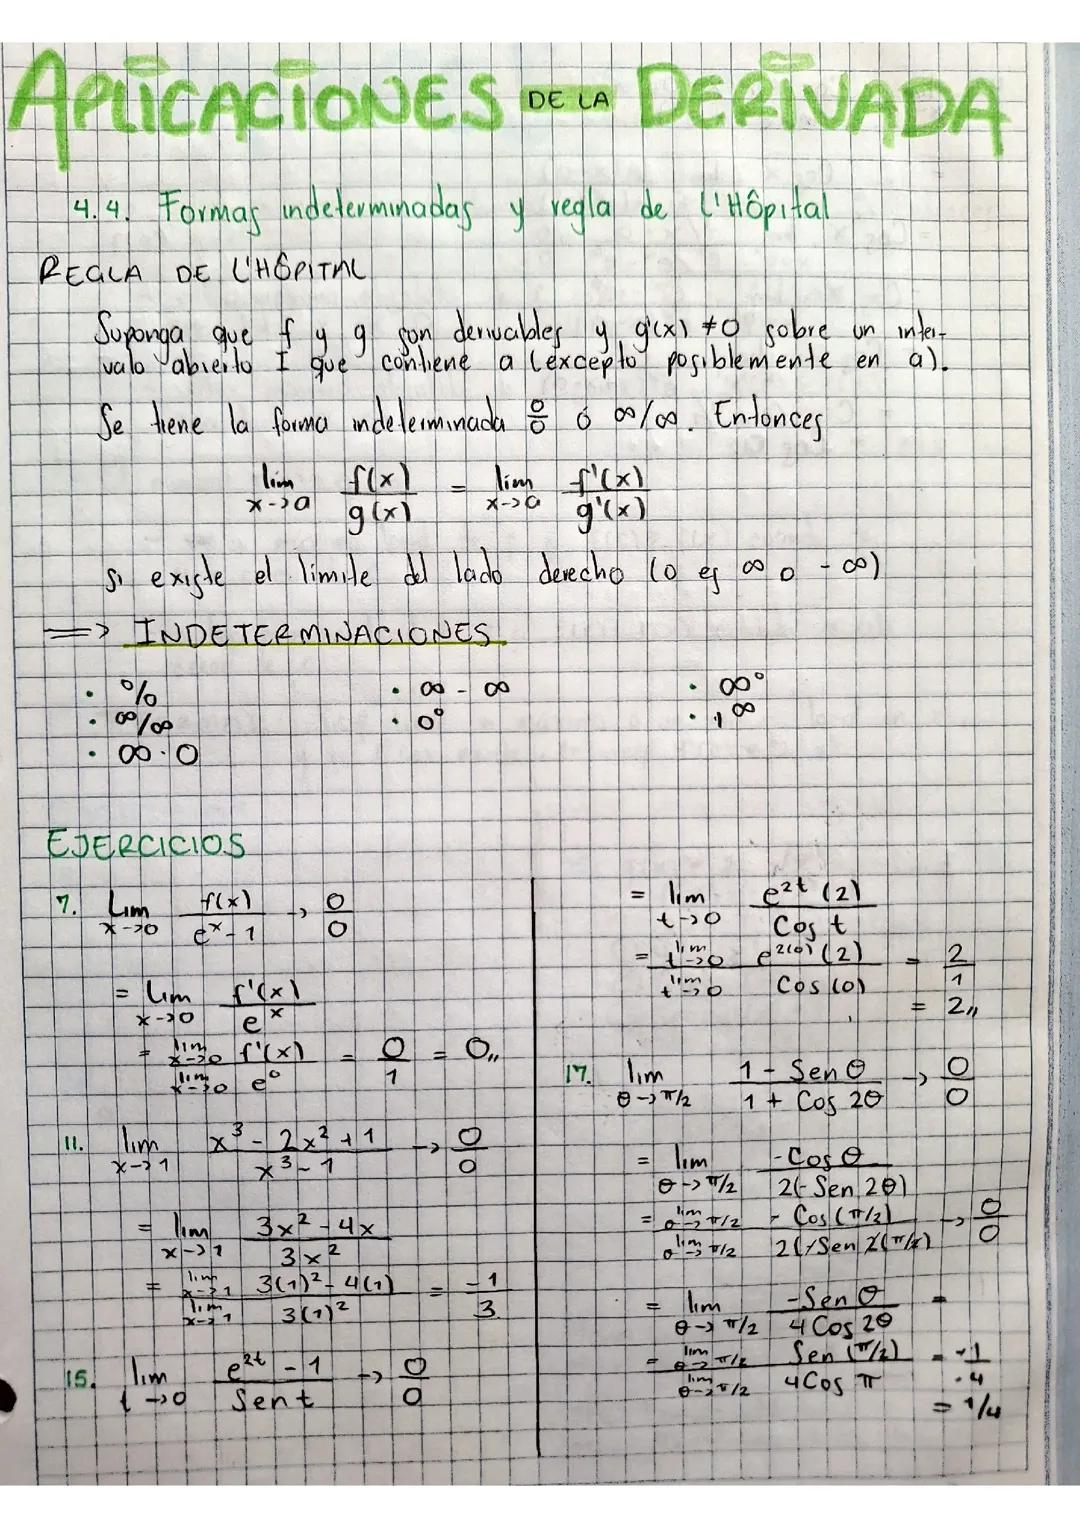 APLICACIONES DE LA DERIVADA
4.4. Formas indeterminadas y regla de L'Hôpital
REGLA DE L'HÔPITAL
Suponga que f y g son derivables y g'(x) ≠ 0 sobre un inter-
valo abierto I que contiene a (excepto posiblemente en a).
Se tiene la forma indeterminada 0/0 ó ∞/∞. Entonces
lim x->a f(x)/g(x) = lim x->a f'(x)/g'(x)
si existe el límite del lado derecho (o es ∞ o -∞)
=> INDETERMINACIONES
• 0/0 • ∞ - ∞ • ∞°
• ∞/∞ • 0° • 1^∞
• ∞·0
EJERCICIOS
7. Lim x->0 f(x)/(e^x - 1) -> 0/0
= Lim x->0 f'(x)/e^x
= lim x->0 f'(x) / lim x->0 e^0 = 0/1 = 0,,
11. lim x->1 (x^3 - 2x^2 + 1)/(x^3 - 1) -> 0/0
= lim x->1 (3x^2 - 4x)/(3x^2)
= lim x->1 3(1)^2 - 4(1) / lim x->1 3(1)^2 = -1/3
15. lim t->0 (e^2t - 1)/(Sen t) -> 0/0
= lim t->0 e^2t (2)/Cos t
= lim t->0 e^2(0) (2) / lim t->0 Cos (0) = 2/1
= 2,,
17. lim θ->π/2 (1 - Sen θ)/(1 + Cos 2θ) -> 0/0
= lim θ->π/2 -Cos θ/2(-Sen 2θ)
= lim θ->π/2 - Cos (π/2) / lim θ->π/2 2(-Sen 2(π/2) -> 0/0
= lim θ->π/2 -Sen θ/4 Cos 2θ =
= lim θ->π/2 Sen (π/2) / lim θ->π/2 4 Cos π = -1/-4
= 1/4